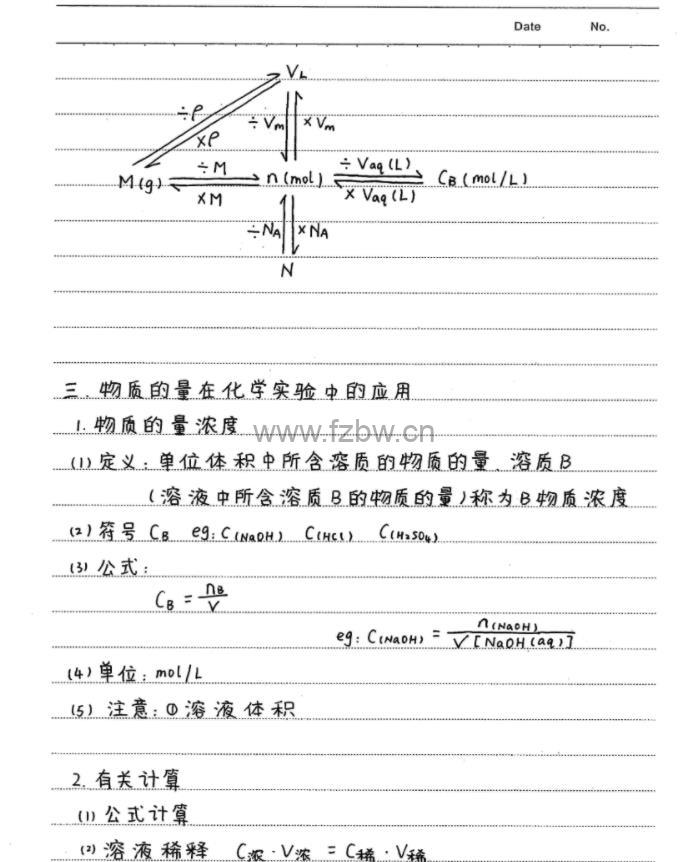 Date No.
VL
÷ρ ×ρ ÷Vm ×Vm
M(g) ÷M ×M n(mol) ÷Vaq(L) ×Vaq(L) CB(mol/L)
÷NA ×NA
N
三.物质的量在化学实验中的应用
1.物质的量浓度
www.fzbw.cn
(1)定义:单位体积中所含溶质的物质的量.溶质B
(溶液中所含溶质B的物质的量)称为B物质浓度
(2)符号 CB eg:C(NaOH) C(HCl) C(H2SO4)
(3)公式:
CB = nB/V
eg:C(NaOH) = n(NaOH)/V[NaOH(aq)]
(4)单位:mol/L
(5)注意:①溶液体积
2.有关计算
(1)公式计算
(2)溶液稀释 C浓·V浓 = C稀·V稀